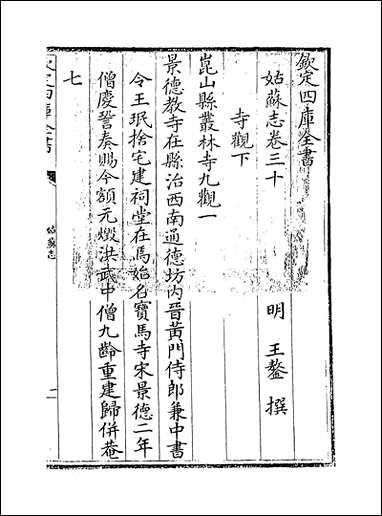 欽定四庫全書
姑蘇志卷三十
明 王鏊 撰
寺觀下
崑山縣叢林寺九觀一
景德教寺在縣治西南通德坊內晉黃門侍郎兼中書
令王珉捨宅建祠堂在馬始名寶馬寺宋景德二年
僧慶誾奏賜今額元燬洪武中僧九齡重建歸併菴
七
欽定四庫全書
姑蘇志
一